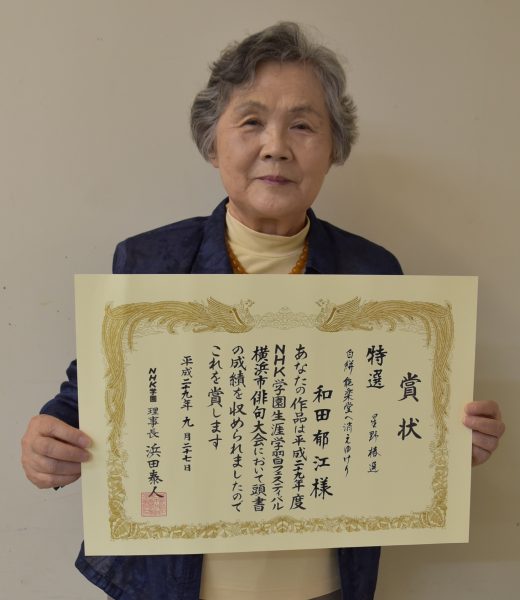 賞状
特選 星野椿選
白絣能楽堂へ消えゆけり
和田郁江様
あなたの作品は平成二九年度
NHK学園生涯学習フェスティバル
横浜市俳句大会において頭書
の成績を収められましたので
これを賞します
平成二九年九月二七日
NHK学園 理事長 浜田泰人